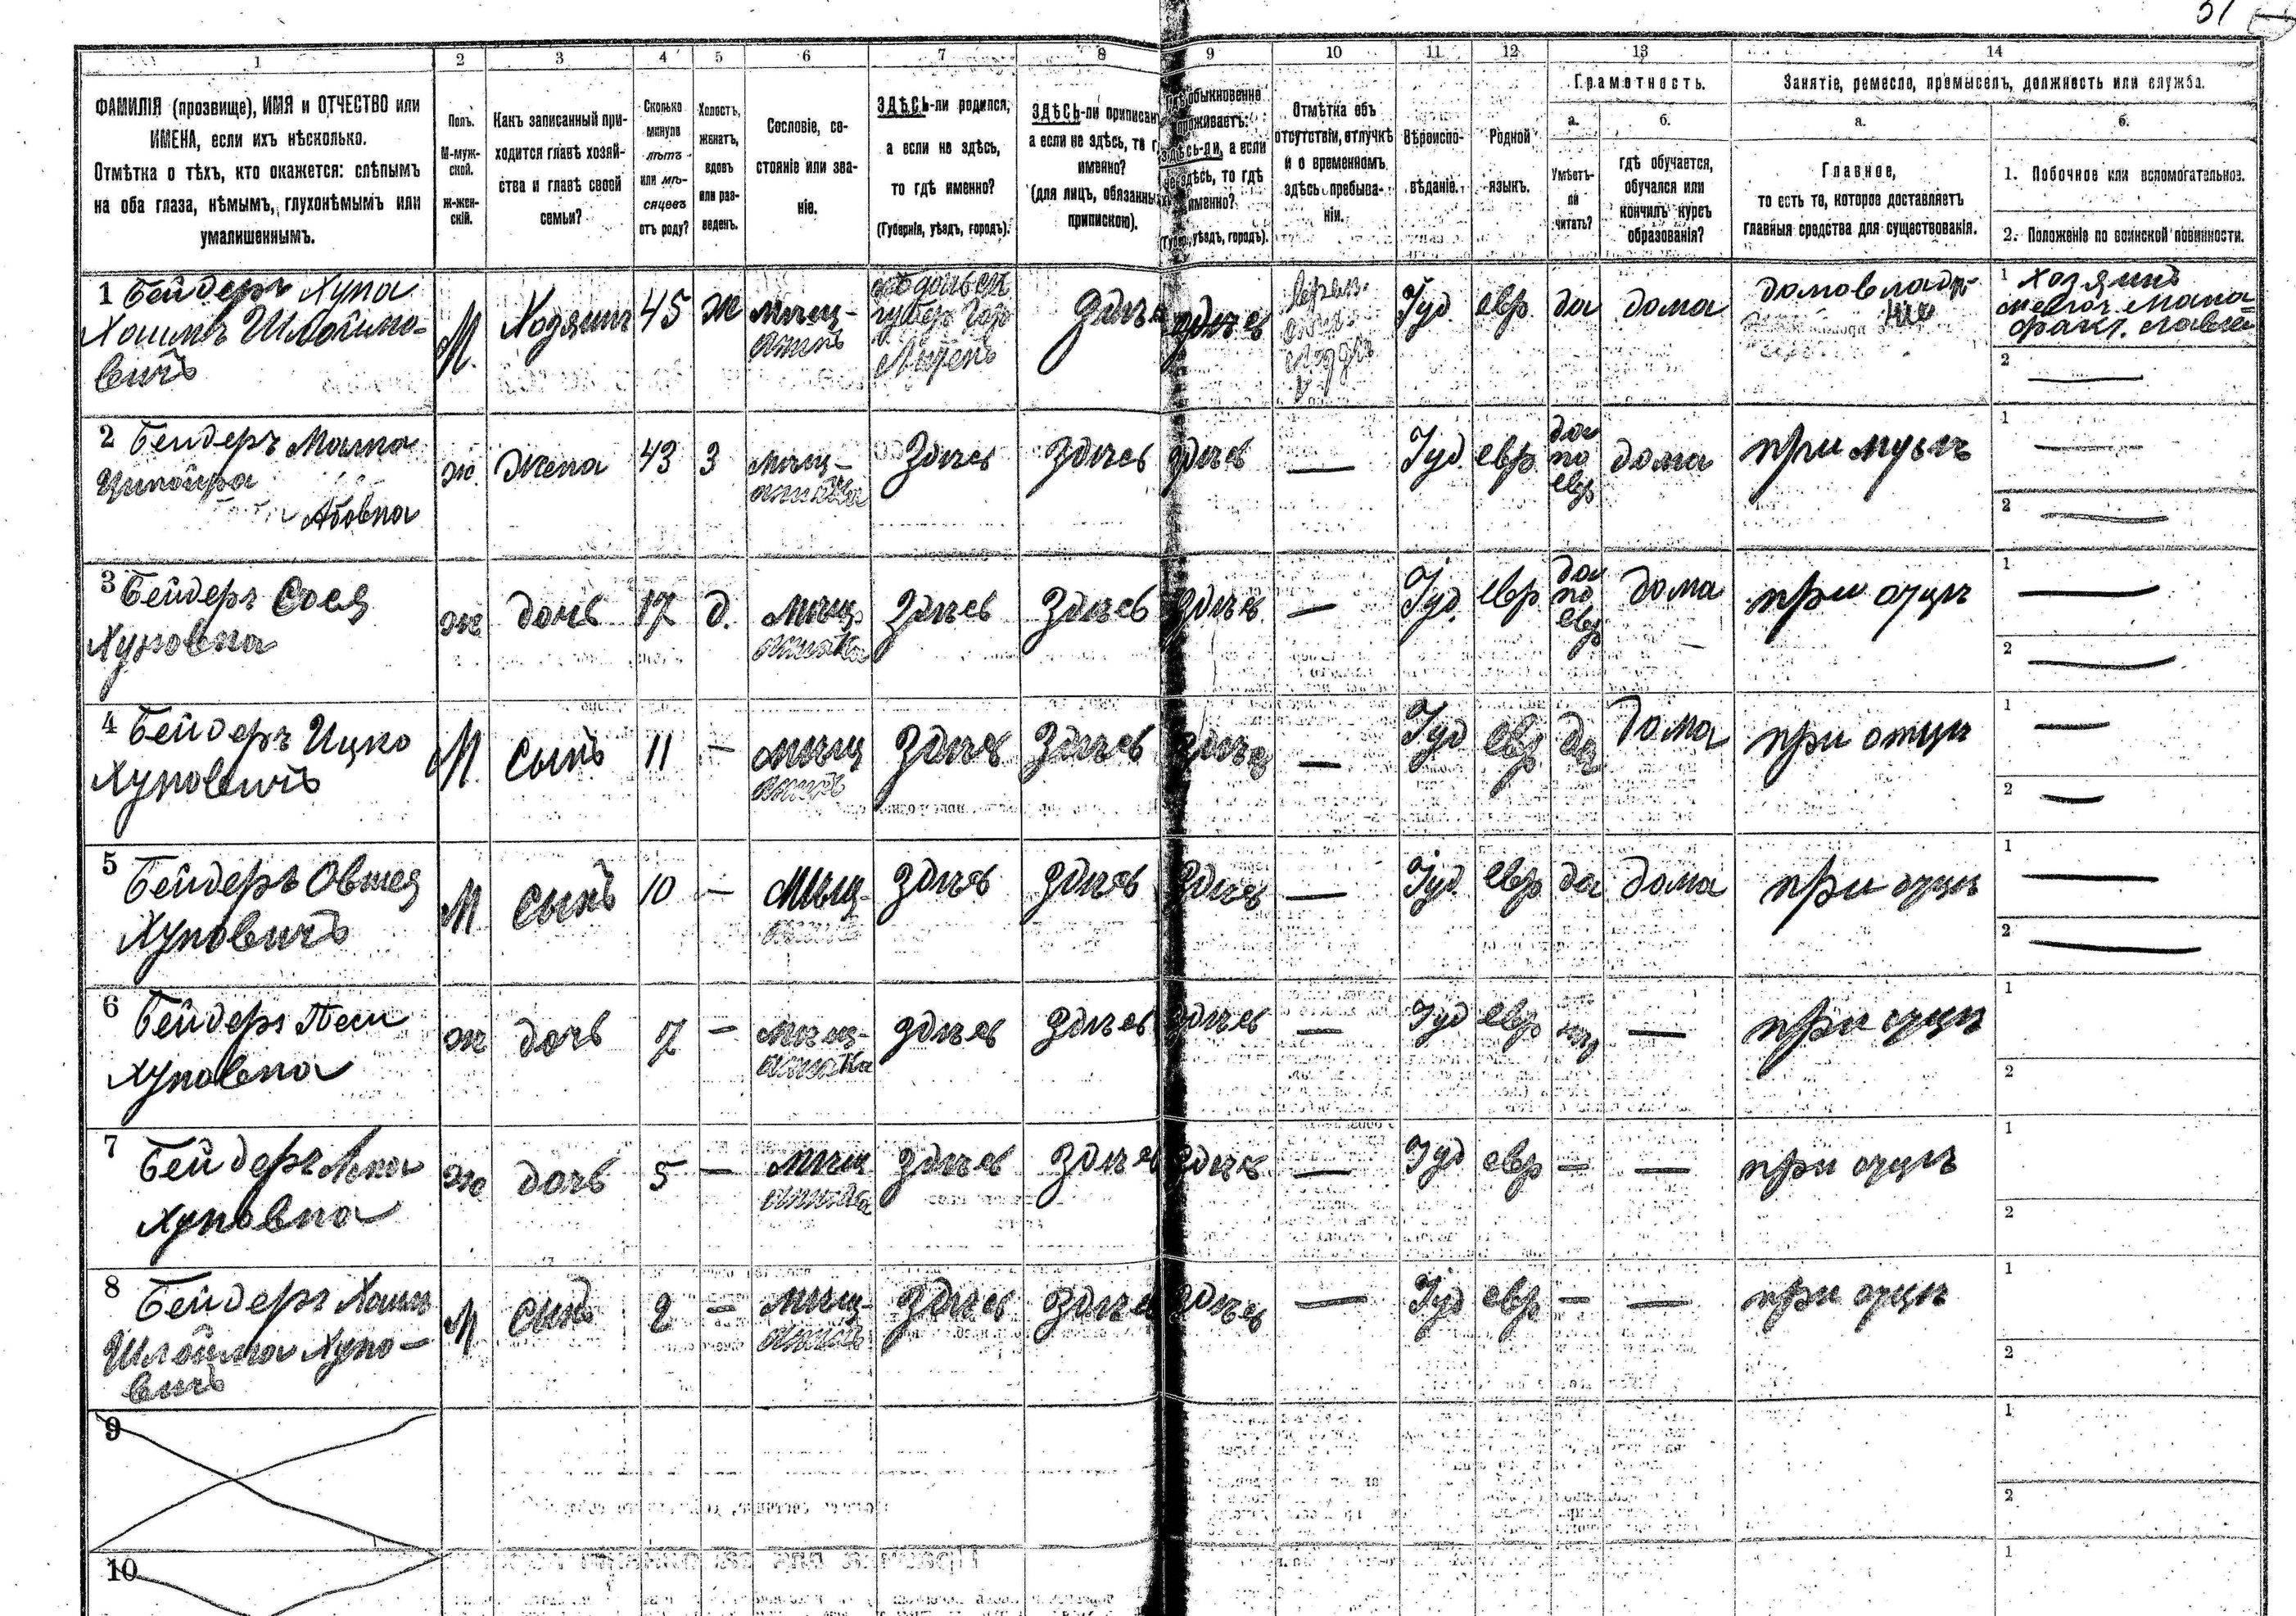 1 2 3 4 5 6 7 8 9 10 11 12 13 14
ФАМИЛІЯ (прозвище), ИМЯ и ОТЧЕСТВО или
ИМЕНА, если ихъ нѣсколько.
Отмѣтка о тѣхъ, кто окажется: слѣпымъ
на оба глаза, нѣмымъ, глухонѣмымъ или
умалишеннымъ.
Полъ.
М-муж-
ской.
Ж-жен-
скій.
Какъ записанный при-
ходится главѣ хозяй-
ства и главѣ своей
семьи?
Сколько
минуло
лѣтъ
или мѣ-
сяцевъ
отъ роду?
Холостъ,
женатъ,
вдовъ
или раз-
веденъ.
Сословіе, со-
стояніе или зва-
ніе.
ЗДѢСЬ-ли родился,
а если не здѣсь,
то гдѣ именно?
(Губернія, уѣздъ, городъ).
ЗДѢСЬ-ли приписанъ
а если не здѣсь, то г
именно?
(для лицъ, обязанныхъ
припискою).
обыкновенно
проживаетъ:
здѣсь-ли, а если
не здѣсь, то гдѣ
именно?
уѣздъ, городъ).
Отмѣтка объ
отсутствіи, отлучкѣ
и о временномъ
здѣсь пребыва-
ніи.
Вѣроиспо-
вѣданіе.
Родной
языкъ.
Грамотность.
а.
Умѣетъ-
ли
читать?
б.
гдѣ обучается,
обучался или
кончилъ курсъ
образованія?
Занятіе, ремесло, промыселъ, должность или служба.
а.
Главное,
то есть то, которое доставляетъ
главныя средства для существованія.
б.
1. Побочное или вспомогательное.
2. Положеніе по воинской повинности.
1 Бейдеръ Хуна
Хаимъ Шлоймо-
вичъ
М. Хозяинъ 45 ж мѣщ-
анинъ
губер. гор
здѣсь здѣсь
Іуд. евр. да дома
домовладѣ-
ніе
1 Хозяинъ
мелоч. мана-
факт. лавки
2 —
2 Бейдеръ Малка
Абовна
ж. жена 43 З мѣщ-
анка
здѣсь здѣсь здѣсь — Іуд. евр.
да
по
евр
дома при мужѣ
1 —
2 —
3 Бейдеръ Сося
Хуновна
ж. дочь 17 д. мѣщ
анка
здѣсь здѣсь здѣсь — Іуд. евр
да
по
евр
дома при отцѣ
1 —
2 —
4 Бейдеръ Ицко
Хуновичъ
М. сынъ 11 — мѣщ
анинъ
здѣсь здѣсь здѣсь — Іуд евр да дома при отцѣ
1 —
2 —
5 Бейдеръ Овшея
Хуновичъ
М сынъ 10 — мѣщ-
анинъ
здѣсь здѣсь здѣсь — Іуд евр да дома при отцѣ
1 —
2 —
6 Бейдеръ Песи
Хуновна
ж дочь 7 — мѣщ-
анка
здѣсь здѣсь здѣсь — Іуд евр — при отцѣ
1
2
7 Бейдеръ
Хуновна
ж дочь 5 — мѣщ
анка
здѣсь здѣсь здѣсь — Іуд евр — — при отцѣ
1
2
8 Бейдеръ Хаимъ
Шлойма Хуно-
вичъ
М сынъ 2 — мѣщ-
анинъ
здѣсь здѣсь здѣсь — Іуд евр — — при отцѣ
1
2
9
1
2
10
1